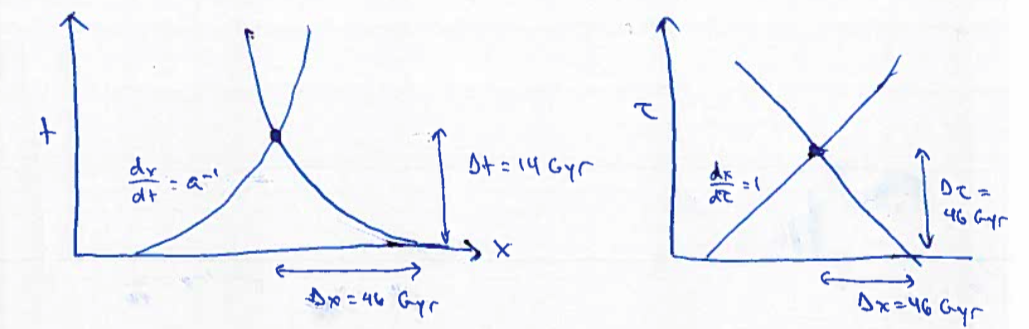 t
dx/dt = a⁻¹
Δt = 14 Gyr
x
Δx = 46 Gyr
τ
dx/dτ = 1
Δτ =
46 Gyr
Δx = 46 Gyr